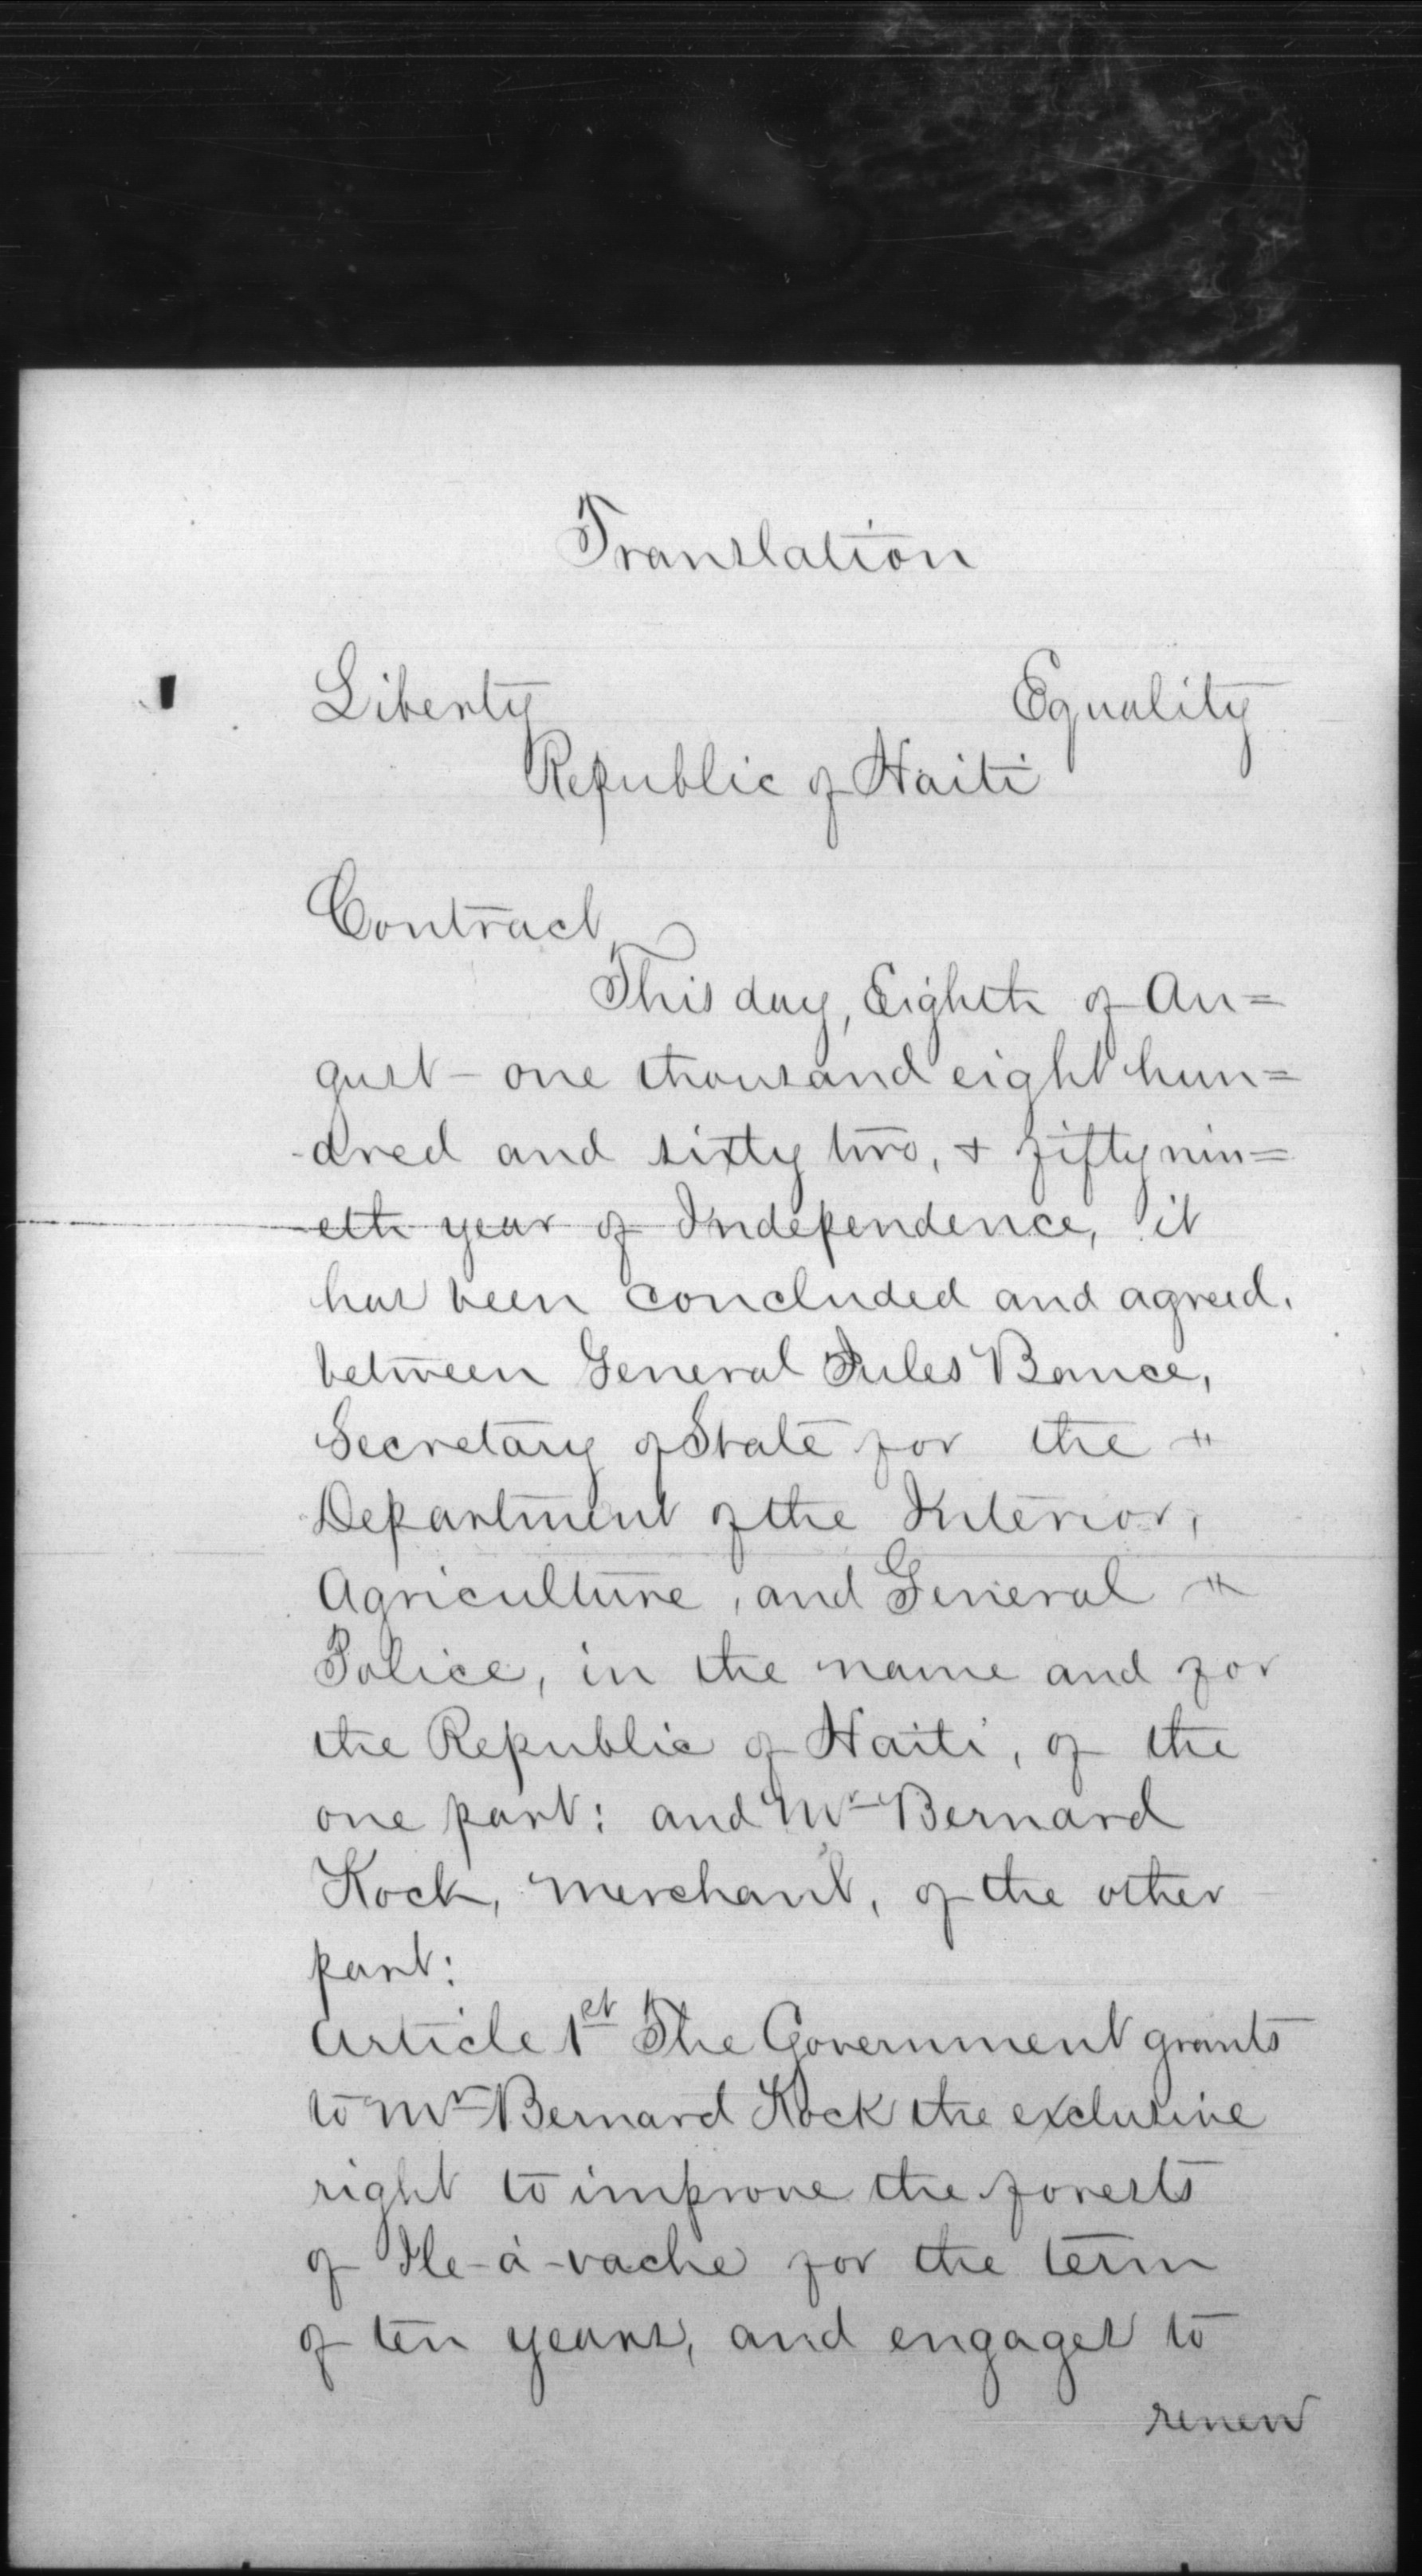 Translation
Liberty Equality
Republic of Haiti
Contract
This day, Eighth of Au=
gust - one thousand eight hun=
dred and sixty two, + fifty nin=
eth year of Independence, it
has been concluded and agreed.
between General Jules Bance,
Secretary of State for the "
Department of the Interior,
Agriculture, and General "
Police, in the name and for
the Republic of Haiti, of the
one part: and Mr Bernard
Kock, merchant, of the other
part:
Article 1st The Government grants
to Mr Bernard Kock the exclusive
right to improve the forests
of Ile-à-vache for the term
of ten years, and engages to
renew